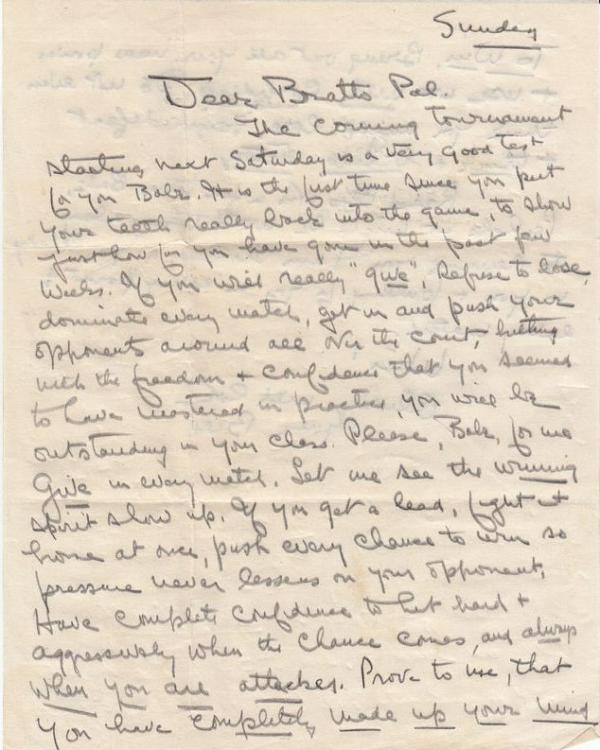 Sunday
Dear Bratto Pal.
The Coming Tournament
starting next Saturday is a very good test
for you Babe. It is the first time since you put
your teeth really back into the game, to show
just how far you have gone in the past few
weeks. If you will really "give", Refuse to lose,
dominate every match, get in and push your
opponents around all over the court, hitting
with the freedom + confidence that you seemed
to have mastered in practice, you will be
outstanding in your class. Please, Babe, for me
Give in every match. Let me see the winning
spirit show up. If you get a lead, fight it
home at once, push every chance to win so
pressure never lessens on your opponent,
Have complete confidence to hit hard +
aggressively when the chance comes, and always
when you are attacked. Prove to me, that
you have completely made up your mind